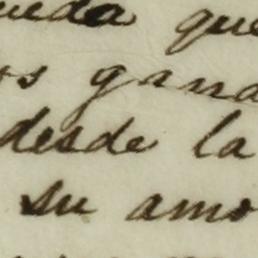 ueda que
os gana
desde la
su amo